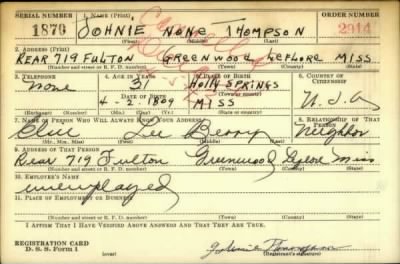 SERIAL NUMBER 1. NAME (Print) ORDER NUMBER
1870 JOHNIE NONE THOMPSON 2914
(First) (Middle) (Last)
Cancelled
2. ADDRESS (Print)
REAR 719 FULTON GREENWOOD LEFLORE MISS
(Number and street or R. F. D. number) (Town) (County) (State)
3. TELEPHONE 4. AGE IN YEARS 5. PLACE OF BIRTH 6. COUNTRY OF CITIZENSHIP
None 31 HOLLY SPRINGS
DATE OF BIRTH
4-2-1809 MISS U.S.A
(Exchange) (Number) (Mo.) (Day) (Yr.) (State or country)
7. NAME OF PERSON WHO WILL ALWAYS KNOW YOUR ADDRESS 8. RELATIONSHIP OF THAT PERSON
Lee Berry Neighbor
(Mr., Mrs., Miss) (First) (Middle) (Last)
9. ADDRESS OF THAT PERSON
Rear 719 Fulton Greenwood Miss
(Number and street or R. F. D. number) (Town) (County) (State)
10. EMPLOYER'S NAME
unemployed
11. PLACE OF EMPLOYMENT OR BUSINESS
(Number and street or R. F. D. number) (Town) (County) (State)
I AFFIRM THAT I HAVE VERIFIED ABOVE ANSWERS AND THAT THEY ARE TRUE.
REGISTRATION CARD
D. S. S. Form 1 (over) Johnie Thompson
(Registrant's signature)